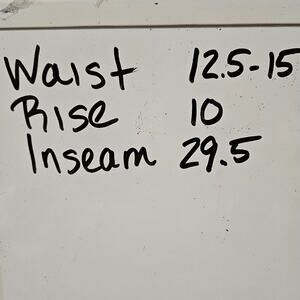 Waist 12.5-15
Rise 10
Inseam 29.5